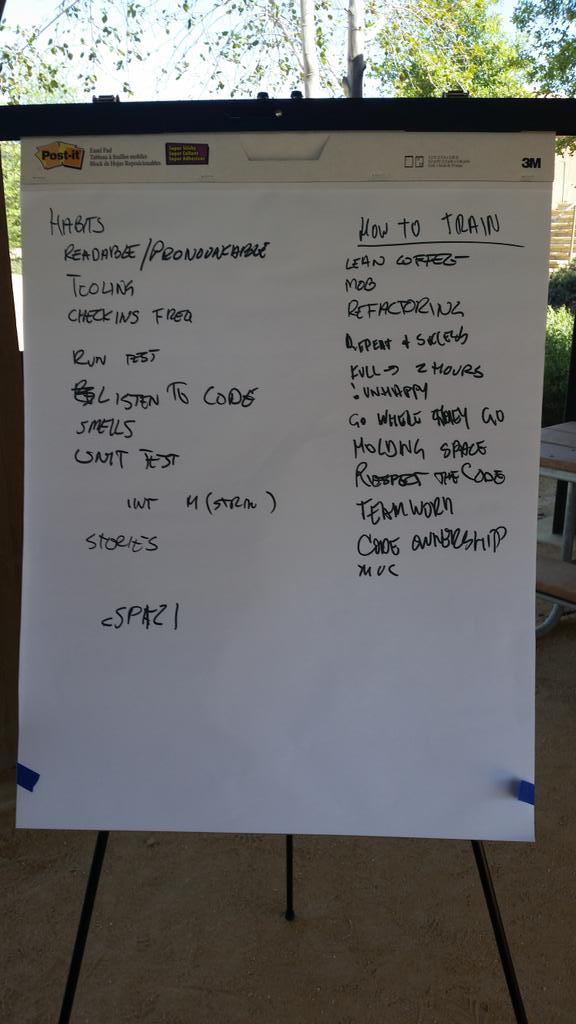 Post-it
Easel Pad
Tableau à feuilles mobiles
Block de Hojas Reposicionables
Super Sticky
Super Collant
Super Adhesivo
3M
HABITS
READABLE/PRONOUNCABLE
TOOLING
CHECKINS FREQ
RUN TEST
LISTEN TO CODE
SMELLS
UNIT TEST
INT M (STRING)
STORIES
HOW TO TRAIN
LEAN COFFEE
MOB
REFACTORING
REPEAT & SUCCESS
FULL → 2 HOURS
: UNHAPPY
GO WHERE THEY GO
HOLDING SPACE
RESPECT THE CODE
TEAMWORK
CODE OWNERSHIP
MVC